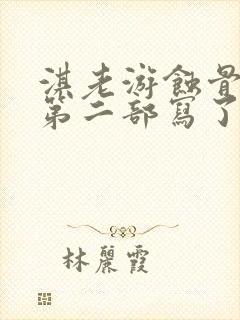 淇老游蝕骨
第二部寫了
林麗霞